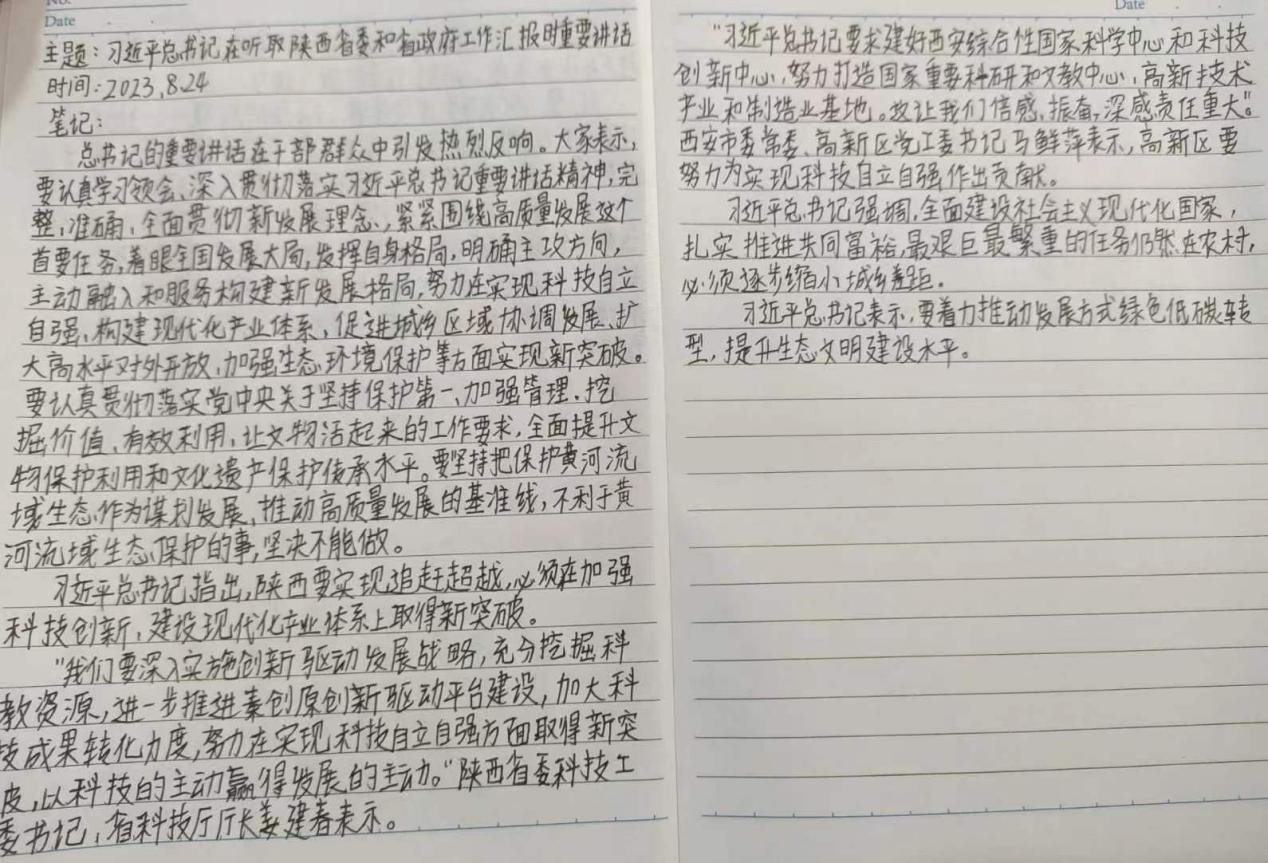 No.
Date
主题：习近平总书记在听取陕西省委和省政府工作汇报时重要讲话
时间：2023.8.24
笔记：
总书记的重要讲话在干部群众中引发热烈反响。大家表示，
要认真学习领会、深入贯彻落实习近平总书记重要讲话精神，完
整、准确、全面贯彻新发展理念、紧紧围绕高质量发展这个
首要任务，着眼全国发展大局，发挥自身格局，明确主攻方向，
主动融入和服务构建新发展格局，努力在实现科技自立
自强，构建现代化产业体系，促进城乡区域协调发展、扩
大高水平对外开放，加强生态环境保护等方面实现新突破。
要认真贯彻落实党中央关于坚持保护第一、加强管理、挖
掘价值、有效利用、让文物活起来的工作要求，全面提升文
物保护利用和文化遗产保护传承水平。要坚持把保护黄河流
域生态作为谋划发展、推动高质量发展的基准线，不利于黄
河流域生态保护的事，坚决不能做。
习近平总书记指出，陕西要实现追赶超越，必须在加强
科技创新、建设现代化产业体系上取得新突破。
“我们要深入实施创新驱动发展战略，充分挖掘科
教资源，进一步推进秦创原创新驱动平台建设，加大科
技成果转化力度，努力在实现科技自立自强方面取得新突
皮，以科技的主动赢得发展的主动。”陕西省委科技工
委书记，省科技厅厅长姜建春表示。
Date
“习近平总书记要求建好西安综合性国家科学中心和科技
创新中心，努力打造国家重要科研和文教中心，高新技术
产业和制造业基地。放让我们倍感，振奋，深感责任重大”。
西安市委常委、高新区党工委书记马鲜萍表示，高新区要
努力为实现科技自立自强作出贡献。
习近平总书记强调，全面建设社会主义现代化国家，
扎实推进共同富裕，最艰巨最繁重的任务仍然在农村，
必须逐步缩小城乡差距。
习近平总书记表示，要着力推动发展方式绿色低碳转
型，提升生态文明建设水平。